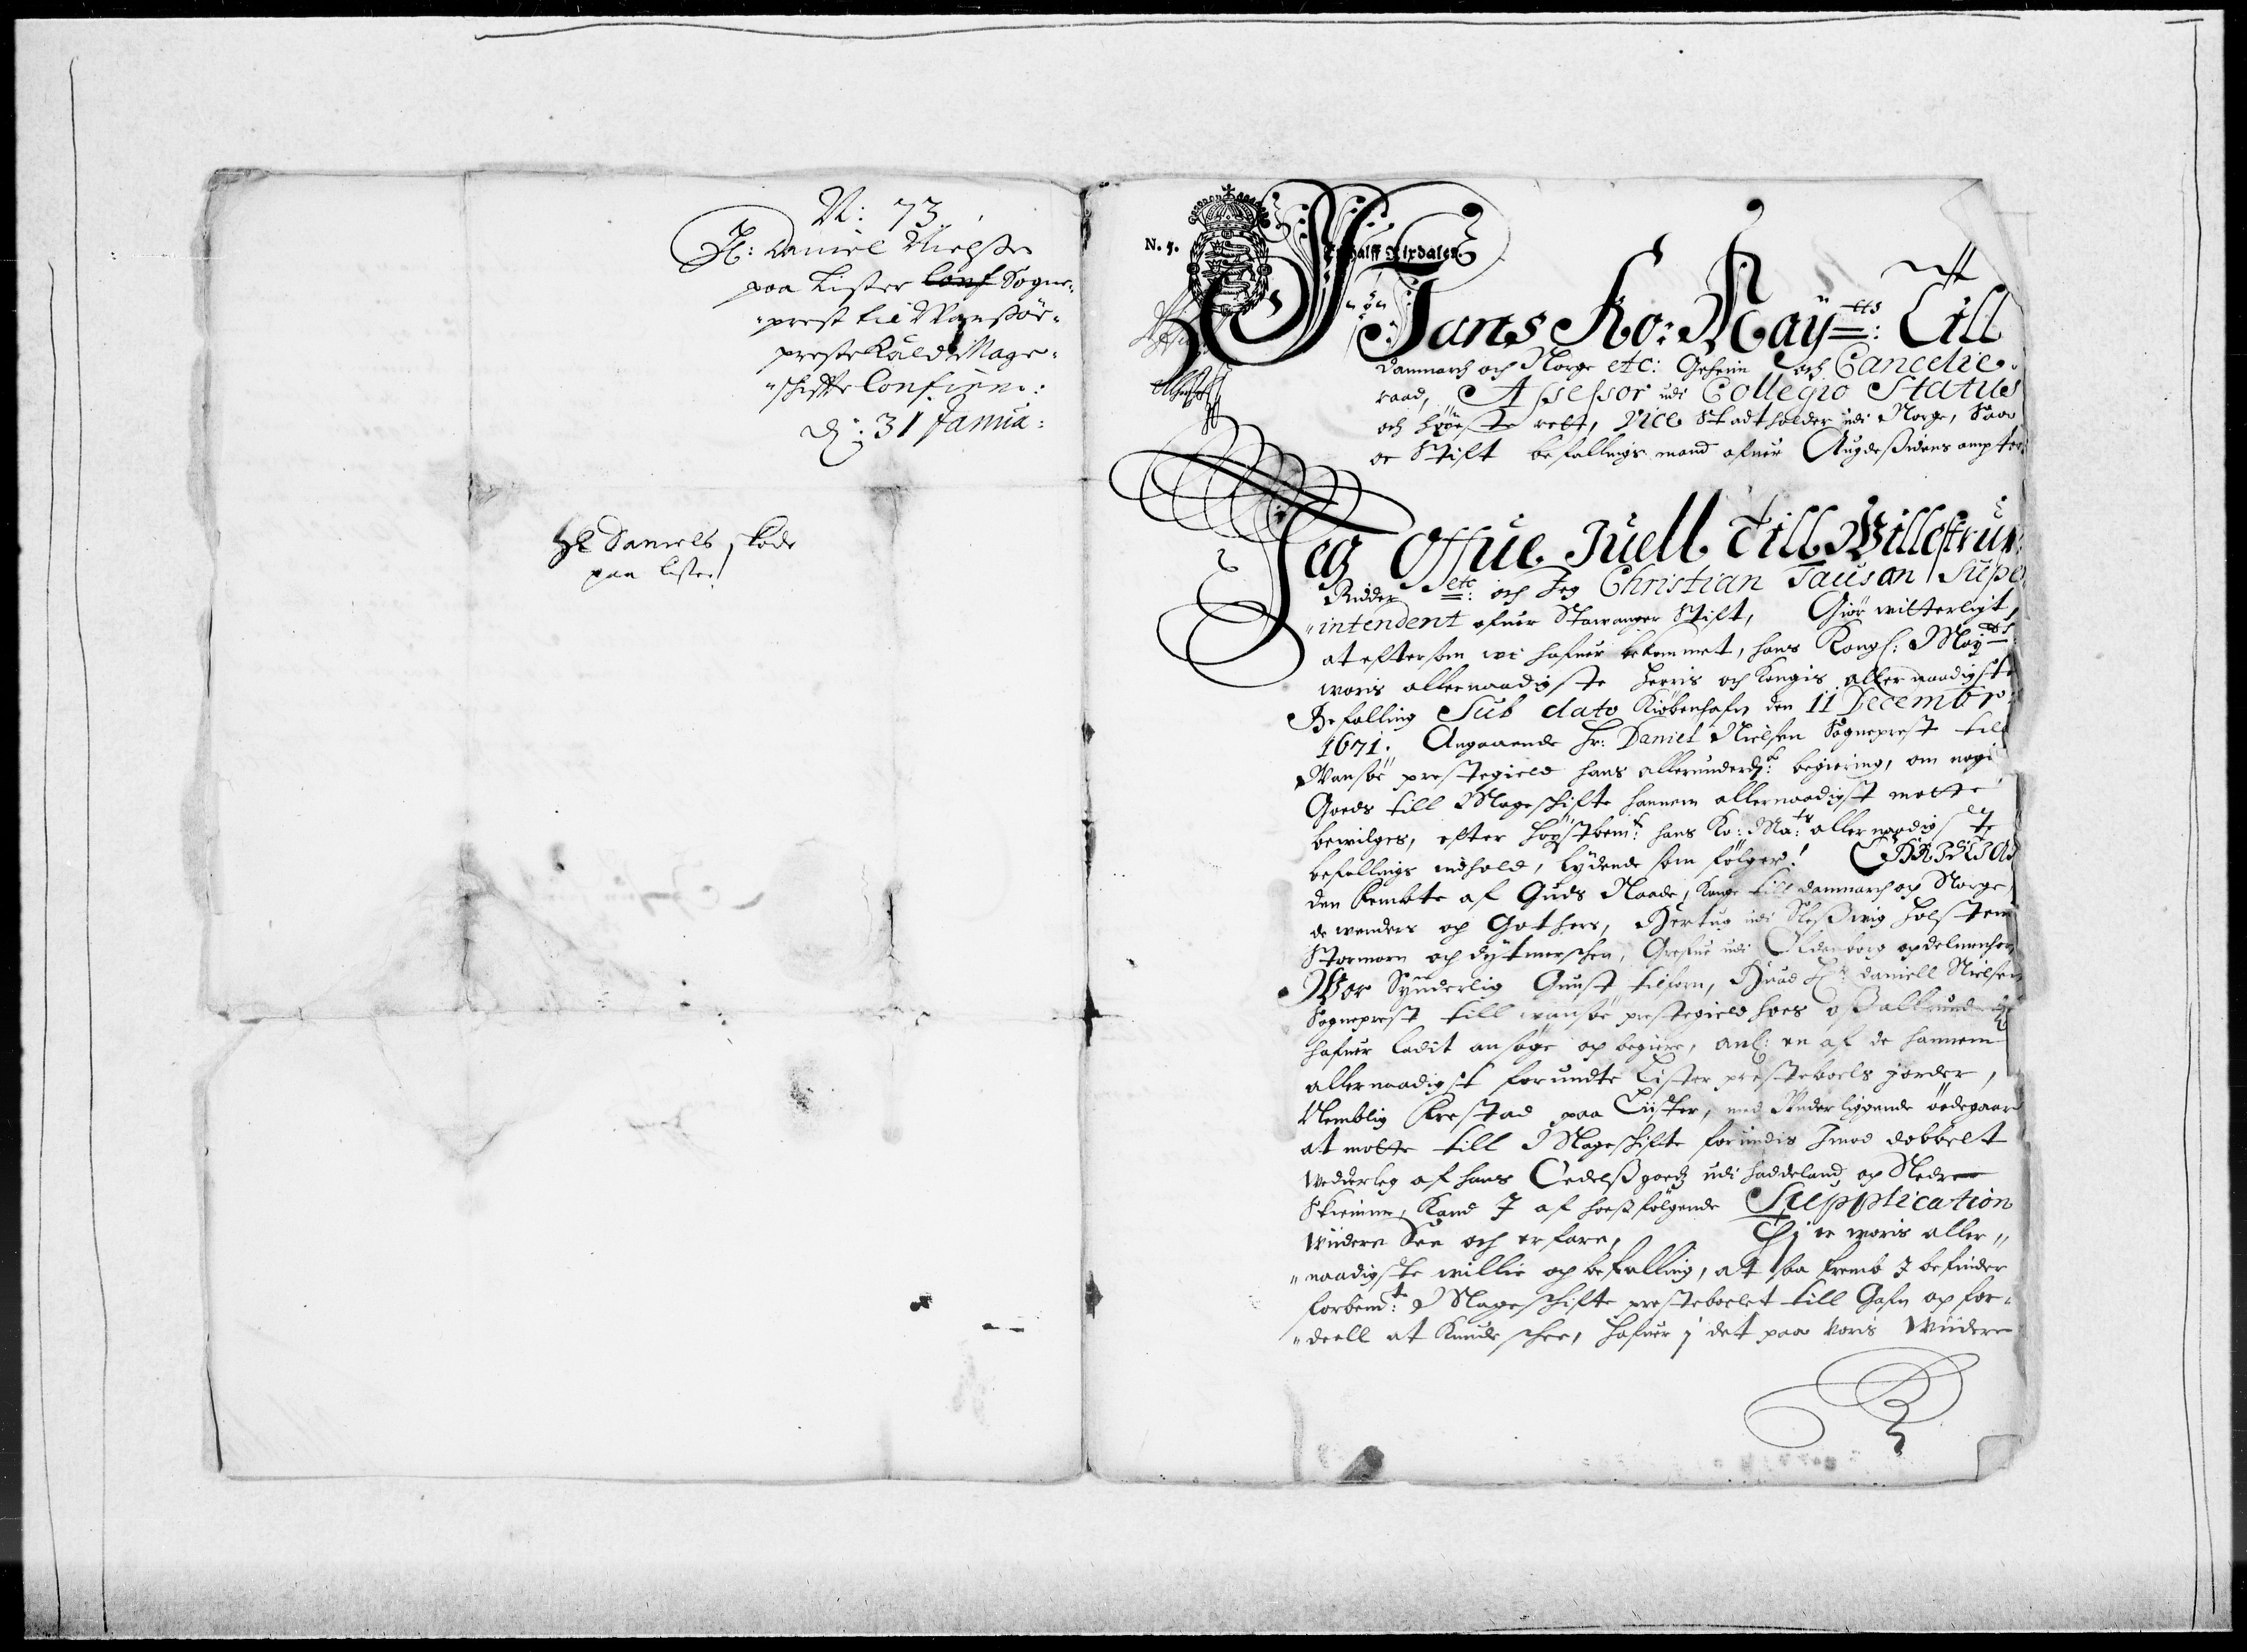 N: 73.
Hr: Daniel Nielssen
paa Lister Conf Sogne-
-prest til Wanssöe-
preste Kald Mage-
-schiffte Confirm:
D: 31 Janua:
Hr Daniels schöde
paa Lister
N. 5.
Halff Rixdaler
Hans Ko: May.tts Till
Danmarch och Norge etc: Geheim och Cancelie-
raad, Assessor udi Collegio Status
och höieste rett, Vice Stadtholder udi Norge, Saa
oc Stift befallings mand ofuer Augdesidens ampter
Jeg Offue Juell till Willestrup
Ridder etc: och Jeg Christian Tausan Supe
-intendent ofuer Stawanger Stift, Giör witterligt,
at eftersom wi hafuer bekommet, hans Kongl: May.tts
woris allernaadigste Herris och Kongis allernaadigste
Befalling Sub dato Kiöbenhafn den 11 Decembr:
1671. Angaaende Hr: Daniel Nielsen Sogneprest till
Wansöe prestegield hans allerunderd: begiering, om nogi
Goeds till Mageschifte hannem allernaadigst motte
bewilges, efter höystbem.te hans Ko: Ma.tts allernaadigste
befallings indhold, lydende som fölger!
den femte af Guds Naade, Konge till Danmarch og Norge
de wenders og Gothers, Hertug udi Slesswig Holsten
Stormarn och Dytmerschen, Grefue udi Oldenborg og delmenhor
Wor Synderlig Gunst tilforn, Huad Hr: Daniell Nielsen
Sogneprest till wansöe prestegield hoes oss allerund
hafuer ladit ansöge og begiere, anl: en af de hannem
allernaadigst forundte Lister presteboels jorder,
Nemblig Krestad paa Lister, med Underliggende öedegaard
at motte till Mageschifte forundis Jmod dobbelt
Wedderleg af hans Oedelss goedz udi haddeland og Nedre
Skieinne, Kand J af hossfölgende Supplication
Widere See och erfare, Thi er woris aller-
-naadigste willie og befalling, at saa fremb J befinder
forbem.te Mageschifte presteboelet till Gafn og for-
-deell at kunde schee, hafuer j det paa Voris Widere